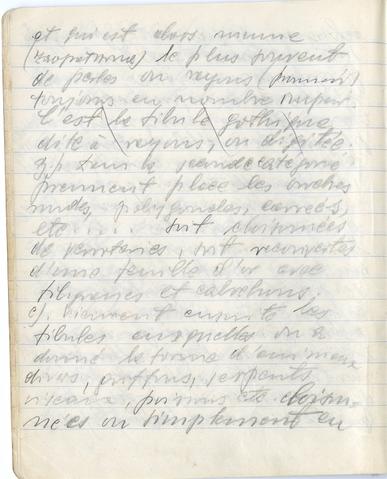 et qui est alors munie
le plus souvent
de perles ou rayons
toujours en nombre impair.
C'est la fibule gothique
dite à rayons, ou digitée.
Dans la catégorie
prennent place les broches
rondes, polygonales, carrées,
etc .... soit cloisonnées
de verroteries, soit recouvertes
d'une feuille d'or avec
filigranes et cabochons;
c). Viennent ensuite les
fibules auxquelles on a
donné la forme d'animaux
divers, griffons, serpents
oiseaux, poissons etc. cloison-
nées ou simplement en